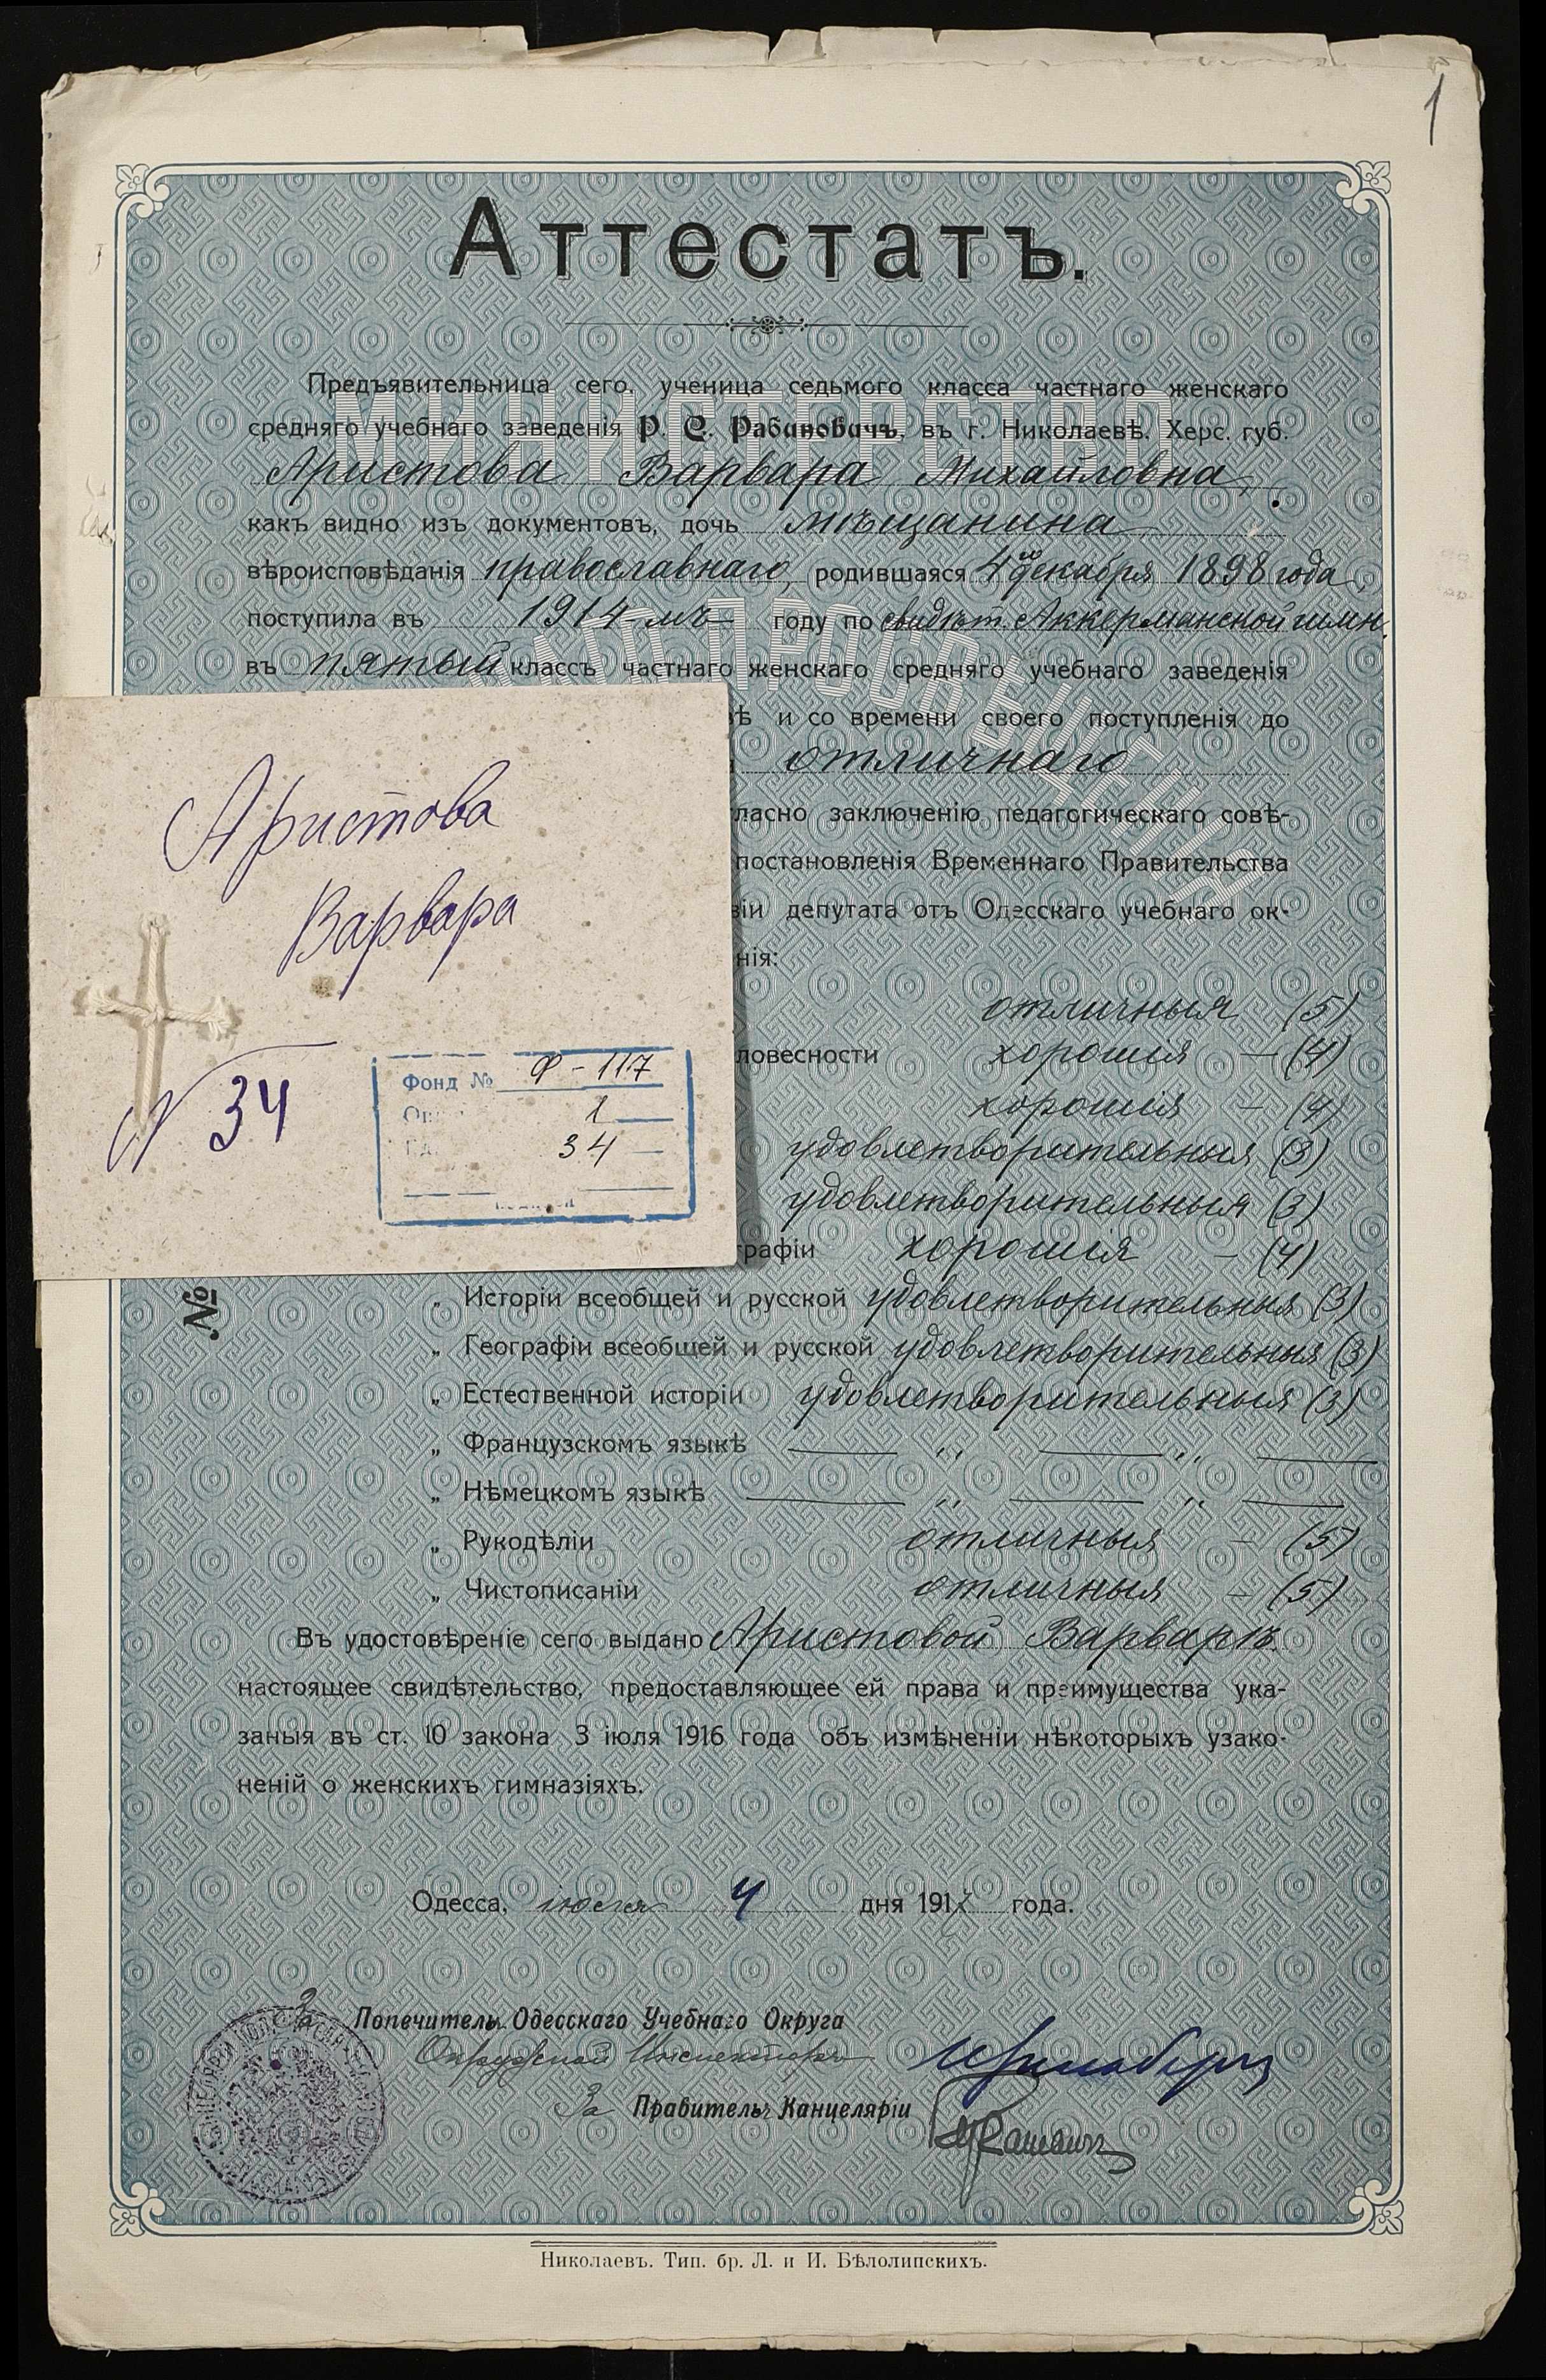 1
Аттестатъ.
МИНИСТЕРСТВО
Предъявительница сего, ученица седьмого класса частнаго женскаго
средняго учебнаго заведенія Р. С. Рабиновичъ, въ г. Николаевѣ. Херс. губ.
Аристова Варвара Михайловна,
какъ видно изъ документовъ, дочь мѣщанина
вѣроисповѣданія православнаго, родившаяся 4го декабря 1898 года,
поступила въ 1914-мъ году по свидѣт. Аккерманской гимн.
въ пятый классъ частнаго женскаго средняго учебнаго заведенія
вѣ и со времени своего поступленія до
отличнаго
гласно заключенію педагогическаго совѣ-
постановленія Временнаго Правительства
віи депутата отъ Одесскаго учебнаго ок-
нія:
отличныя (5)
ловесности хорошія — (4)
хорошія — (4)
удовлетворительныя (3)
удовлетворительныя (3)
графіи хорошія — (4)
„ Исторіи всеобщей и русской удовлетворительныя (3)
„ Географіи всеобщей и русской удовлетворительныя (3)
„ Естественной исторіи удовлетворительныя (3)
„ Французскомъ языкѣ — „ — „ —
„ Нѣмецкомъ языкѣ — „ — „ —
„ Рукодѣліи отличныя — (5)
„ Чистописаніи отличныя — (5)
Въ удостовѣреніе сего выдано Аристовой Варварѣ
настоящее свидѣтельство, предоставляющее ей права и преимущества ука-
заныя въ ст. 10 закона 3 іюля 1916 года объ измѣненіи нѣкоторыхъ узако-
неній о женскихъ гимназіяхъ.
Одесса, іюля 4 дня 1917 года.
За Попечитель Одесскаго Учебнаго Округа
Окружной Инспекторъ
За Правитель Канцеляріи
Николаевъ. Тип. бр. Л. и И. Бѣлолипскихъ.
№
Аристова
Варвара
N 34
Фонд № Ф-117
Оп. 1
34